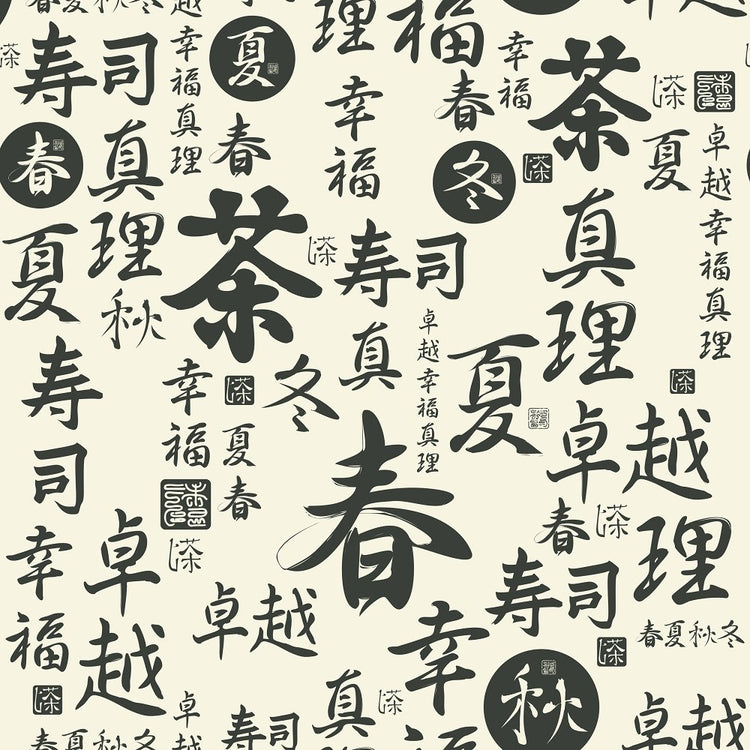 春夏秋冬
越
理
福
寿司
幸福真理
夏
春
幸福
春
幸福
茶
茶
夏
卓越幸福真理
春
真理
冬
夏
茶
茶
寿司
真理
秋
真
卓越幸福真理
夏
寿司
幸福
冬
夏春
春
卓越
春
茶
理
幸福
卓越
卓越
寿司
春夏秋冬
幸福
秋
真
茶
卓越
寿司
春夏秋冬
卓越